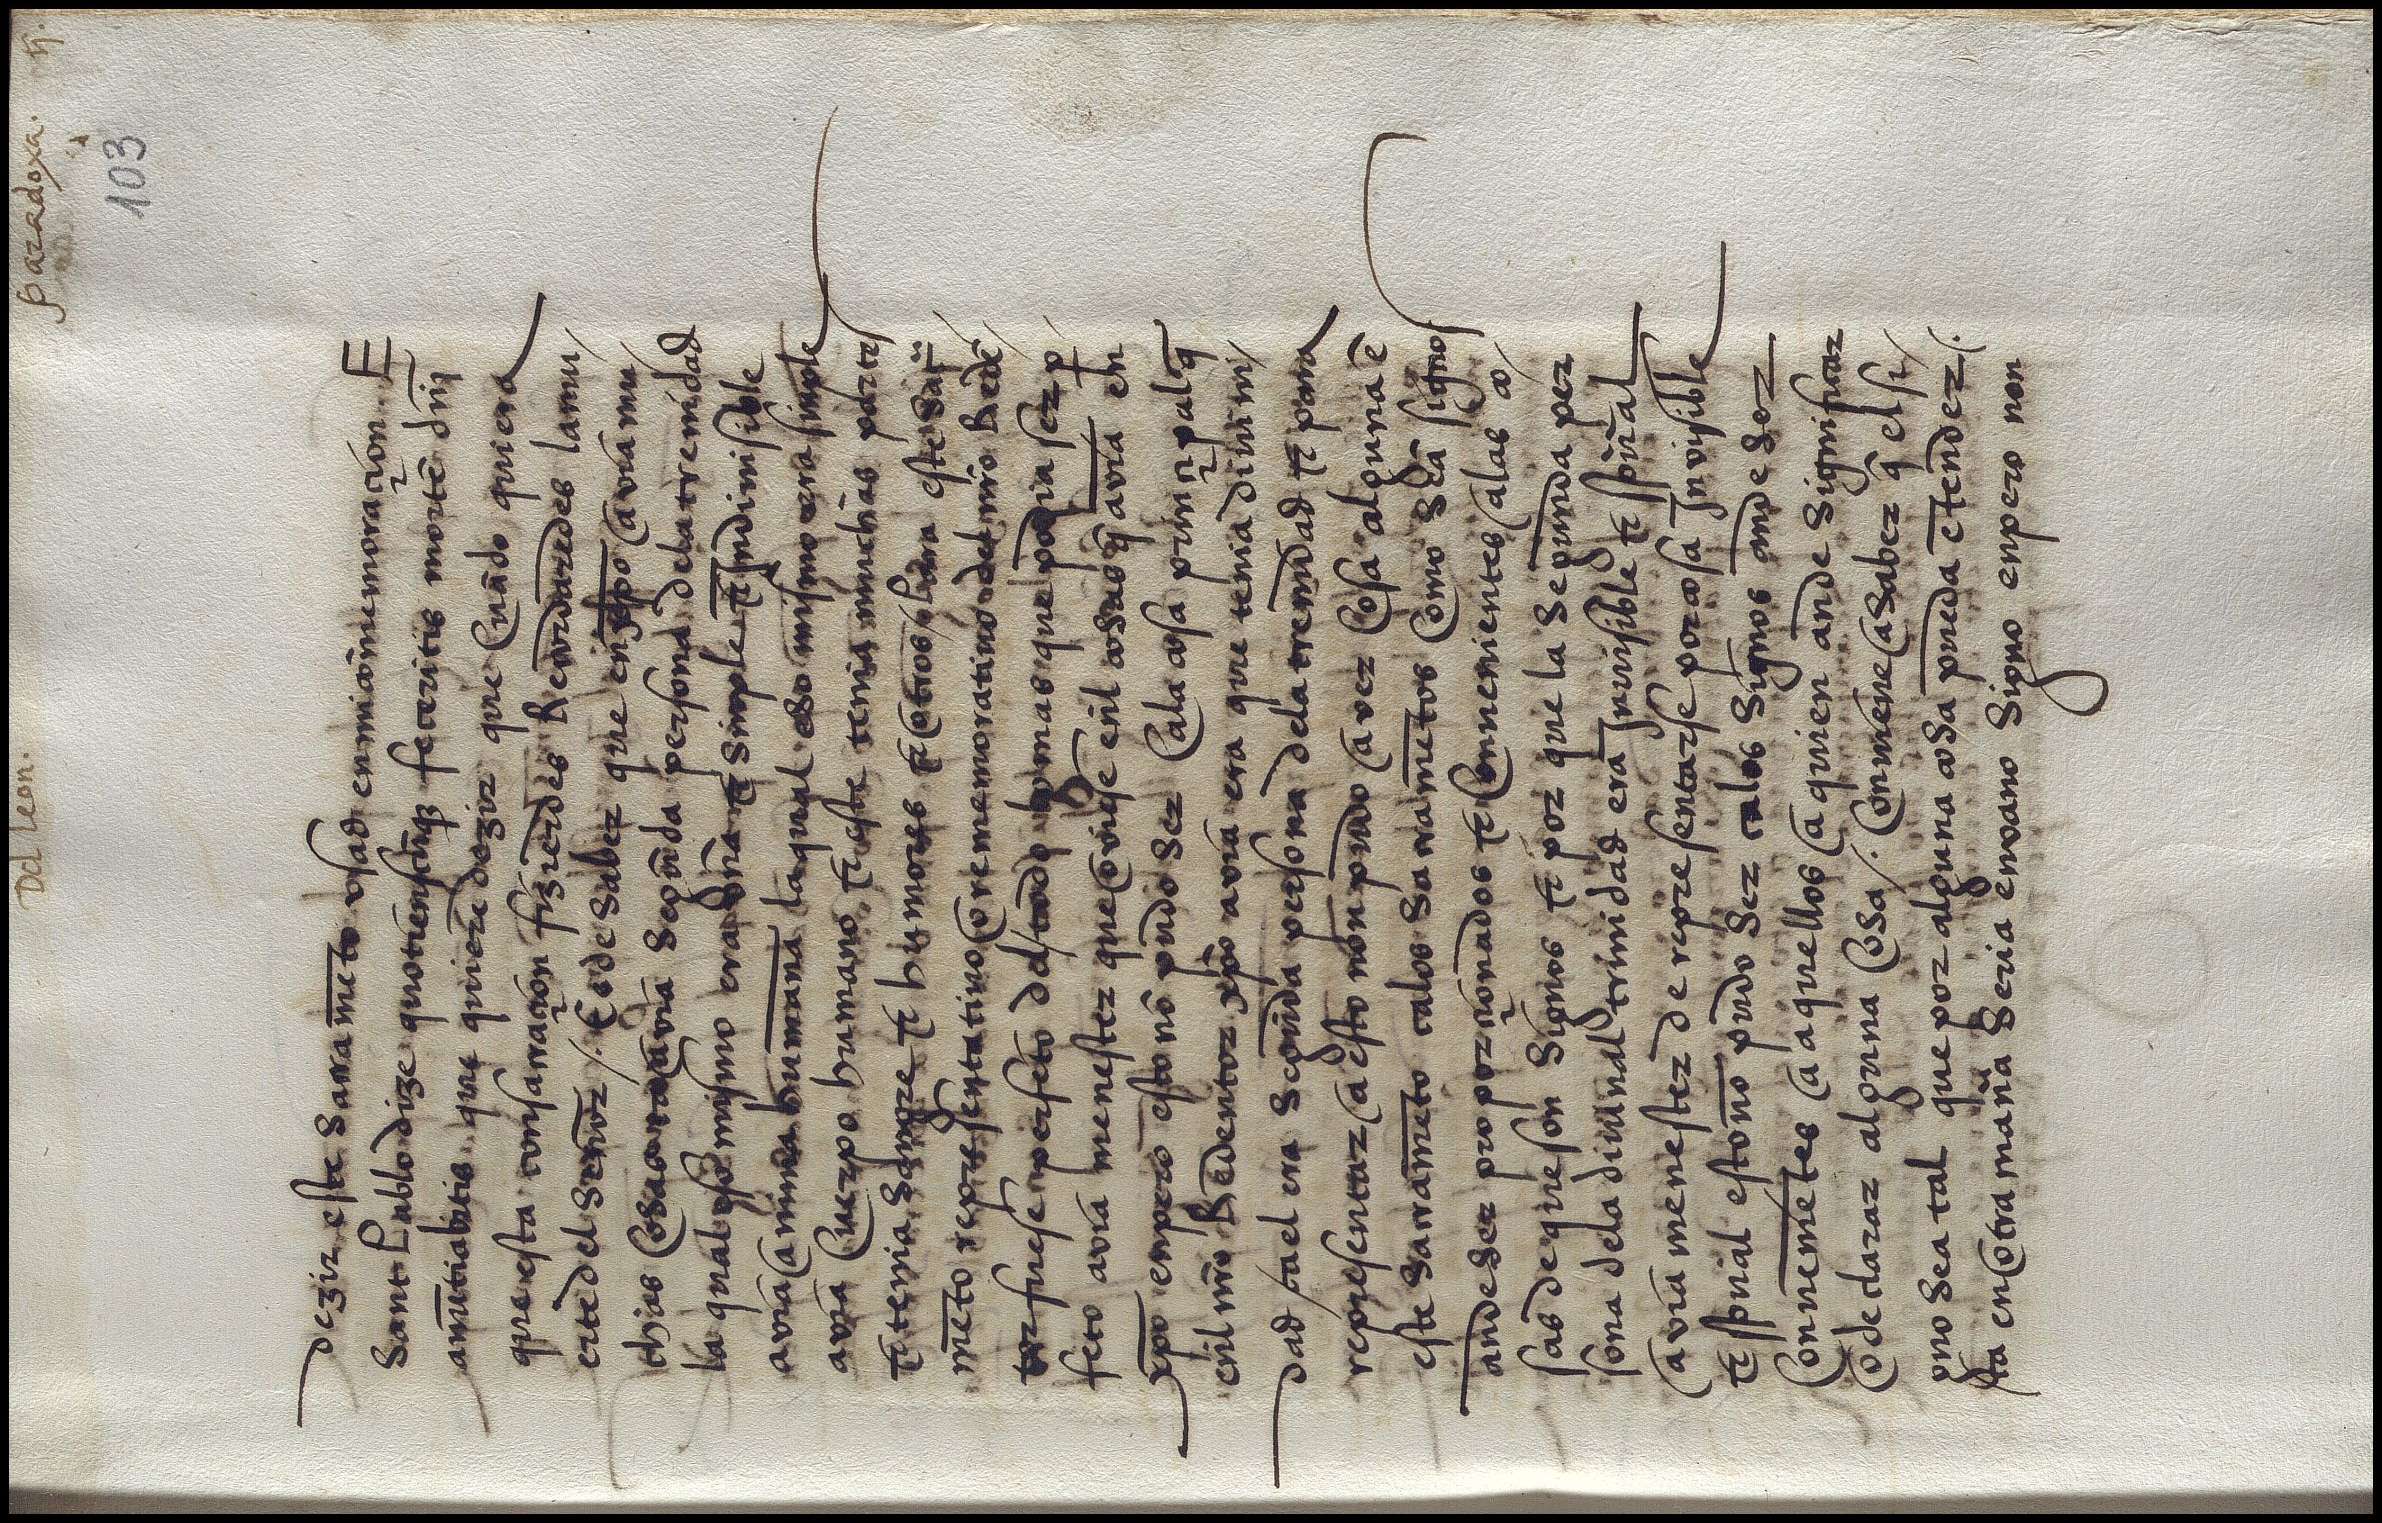 Del leon.
paradoxa. ij.
103
dezir este sacramēto vsad en mi cōmemoracion. E
Sant Pablo dize quotienscūqȝ feceritis mortē dn̄i
anūtiabitis que quiere dezir que cuādo quiera
que esta consacracion fizierdes Recordaredes la mu/
erte del señor /. Es de saber que en xp̄o avia mu/
chas cosas ca avia segūda persona de la trenidad
la qual eso mismo era dīna ⁊ simple ⁊ Indiuisible
avia anima humana la qual eso mismo era simple
avia cuerpo humano ⁊ este tenia muchas partes
⁊ tenia sangre ⁊ humores ⁊ otros / para este sacͣ
mēto representatiuo o rememoratiuo del nr̄o Redē
tor fuese perfeto de todo lo mas que podia ser p
feto avia menester que ouiese en̄l cosas q̄ avia en
xp̄o enpero esto nō pudo ser ca la cosa principal q̄
en̄l nr̄o Redentor xp̄o avia era que tenia diuini/
dad ca el era segūda persona de la trenidad ⁊ para
representar a esto non pudo aver cosa alguna ē
este sacramēto ca los sacramētos como seā signos
an de ser proporcionados ⁊ conuenientes a las co/
sas de que son signos ⁊ por que la segunda per
sona de la diuinal trinidad era Inuisible ⁊ spūal
avia menester de representarse por cosa Inuisible
⁊ spūal esto nō pudo ser ca los signos an de ser
conuenietes a aquellos a quien an de significar
o declarar alguna cosa /. conuiene a saber q̄ el si/
gno sea tal que por alguna cosa pueda ētender /.
ca en otra manͣ seria en vano signo enpero non